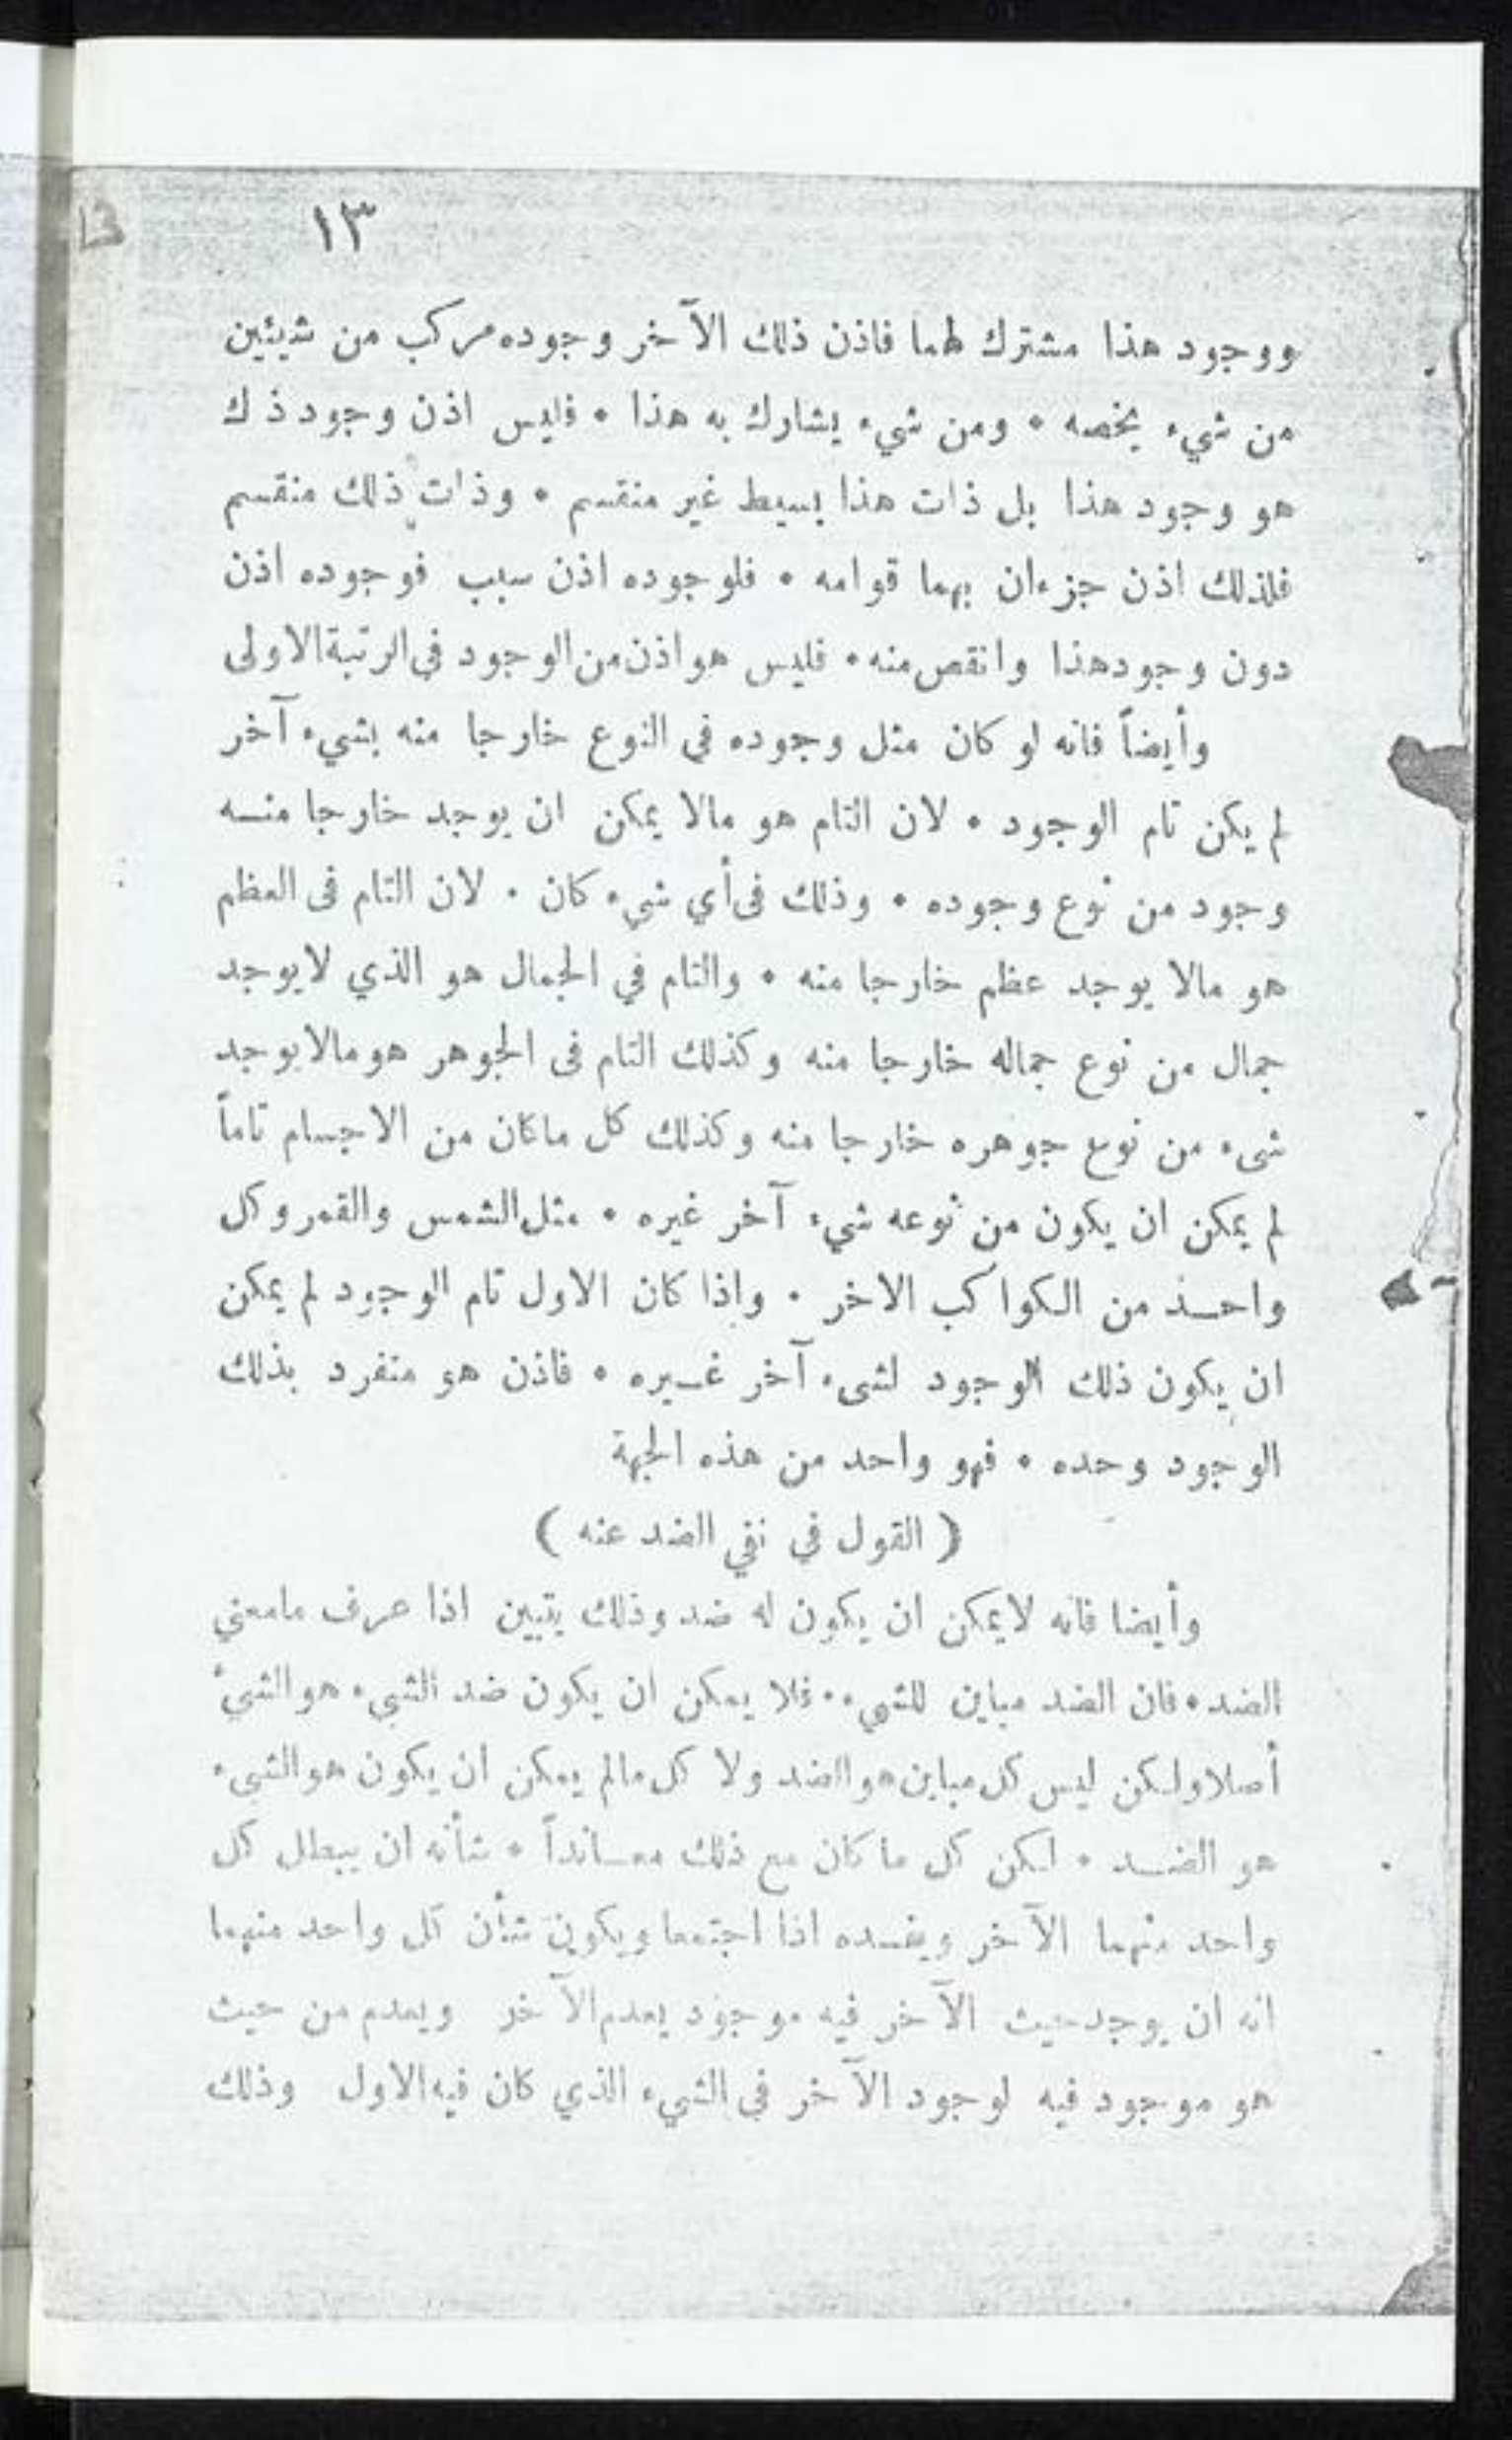 ١٣
13
ووجود هذا مشترك لهما فاذن ذلك الآخر وجوده مركب من شيئين
من شيء يخصه • ومن شيء يشارك به هذا • فليس اذن وجود ذ ك
هو وجود هذا بل ذات هذا بسيط غير منقسم • وذات ذلك منقسم
فلذلك اذن جزءان بهما قوامه • فلوجوده اذن سبب فوجوده اذن
دون وجود هذا وانقص منه • فليس هو اذن من الوجود في الرتبة الاولى
وأيضاً فانه لو كان مثل وجوده فى النوع خارجا منه بشيء آخر
لم يكن تام الوجود • لان التام هو مالا يمكن ان يوجد خارجا منه
وجود من نوع وجوده • وذلك فى أي شيء كان • لان التام فى العظم
هو مالا يوجد عظم خارجا منه • والتام في الجمال هو الذي لا يوجد
جمال من نوع جماله خارجا منه وكذلك التام فى الجوهر هو مالا يوجد
شىء من نوع جوهره خارجا منه وكذلك كل ما كان من الاجسام تاماً
لم يمكن ان يكون من نوعه شيء آخر غيره • مثل الشمس والقمر وكل
واحد من الكواكب الاخر • واذا كان الاول تام الوجود لم يمكن
ان يكون ذلك الوجود لشىء آخر غيره • فاذن هو منفرد بذلك
الوجود وحده • فهو واحد من هذه الجهة
( القول في نفي الضد عنه )
وأيضا فانه لا يمكن ان يكون له ضد وذلك يتبين اذا عرف مامعني
الضد • فان الضد مباين للشيء • فلا يمكن ان يكون ضد الشيء هو الشيء
أصلا ولكن ليس كل مباين هو الضد ولا كل مالم يمكن ان يكون هو الشيء
هو الضد • لكن كل ما كان مع ذلك معانداً • شأنه ان يبطل كل
واحد منهما الآخر ويفسده اذا اجتمعا ويكون شأن كل واحد منهما
انه ان يوجد حيث الآخر فيه موجود يعدم الآخر ويعدم من حيث
هو موجود فيه لوجود الآخر في الشيء الذي كان فيه الاول وذلك